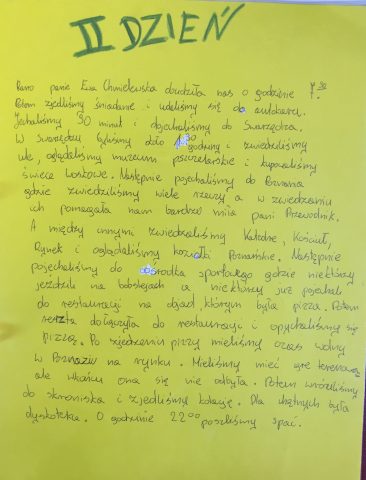 II DZIEŃ
Rano pani Ewa Chmielewska obudziła nas o godzinie 7.30
Potem zjedliśmy śniadanie i udaliśmy się do autokaru.
Jechaliśmy 30 minut i dojechaliśmy do Swarzędza.
W Swarzędzu byliśmy około godziny i zwiedzaliśmy
ule, oglądaliśmy muzeum pszczelarskie i kupowaliśmy
świece woskowe. Następnie pojechaliśmy do Poznania
gdzie zwiedziliśmy wiele rzeczy a w zwiedzaniu
ich pomagała nam bardzo miła pani Przewodnik.
A między innymi zwiedzaliśmy Katedrę, Kościół,
Rynek i oglądaliśmy koziołki Poznańskie. Następnie
pojechaliśmy do ośrodka sportowego gdzie niektórzy
jeździli na bobslejach a niektórzy już pojechali
do restauracji na obiad którym była pizza. Potem
reszta dołączyła do restauracji i opychaliśmy się
pizzą. Po zjedzeniu pizzy mieliśmy czas wolny
w Poznaniu na rynku. Mieliśmy mieć grę terenową
ale właśnie ona się nie odbyła. Potem wróciliśmy
do schroniska i zjedliśmy kolację. Dla chętnych była
dyskoteka. O godzinie 22.00 poszliśmy spać.